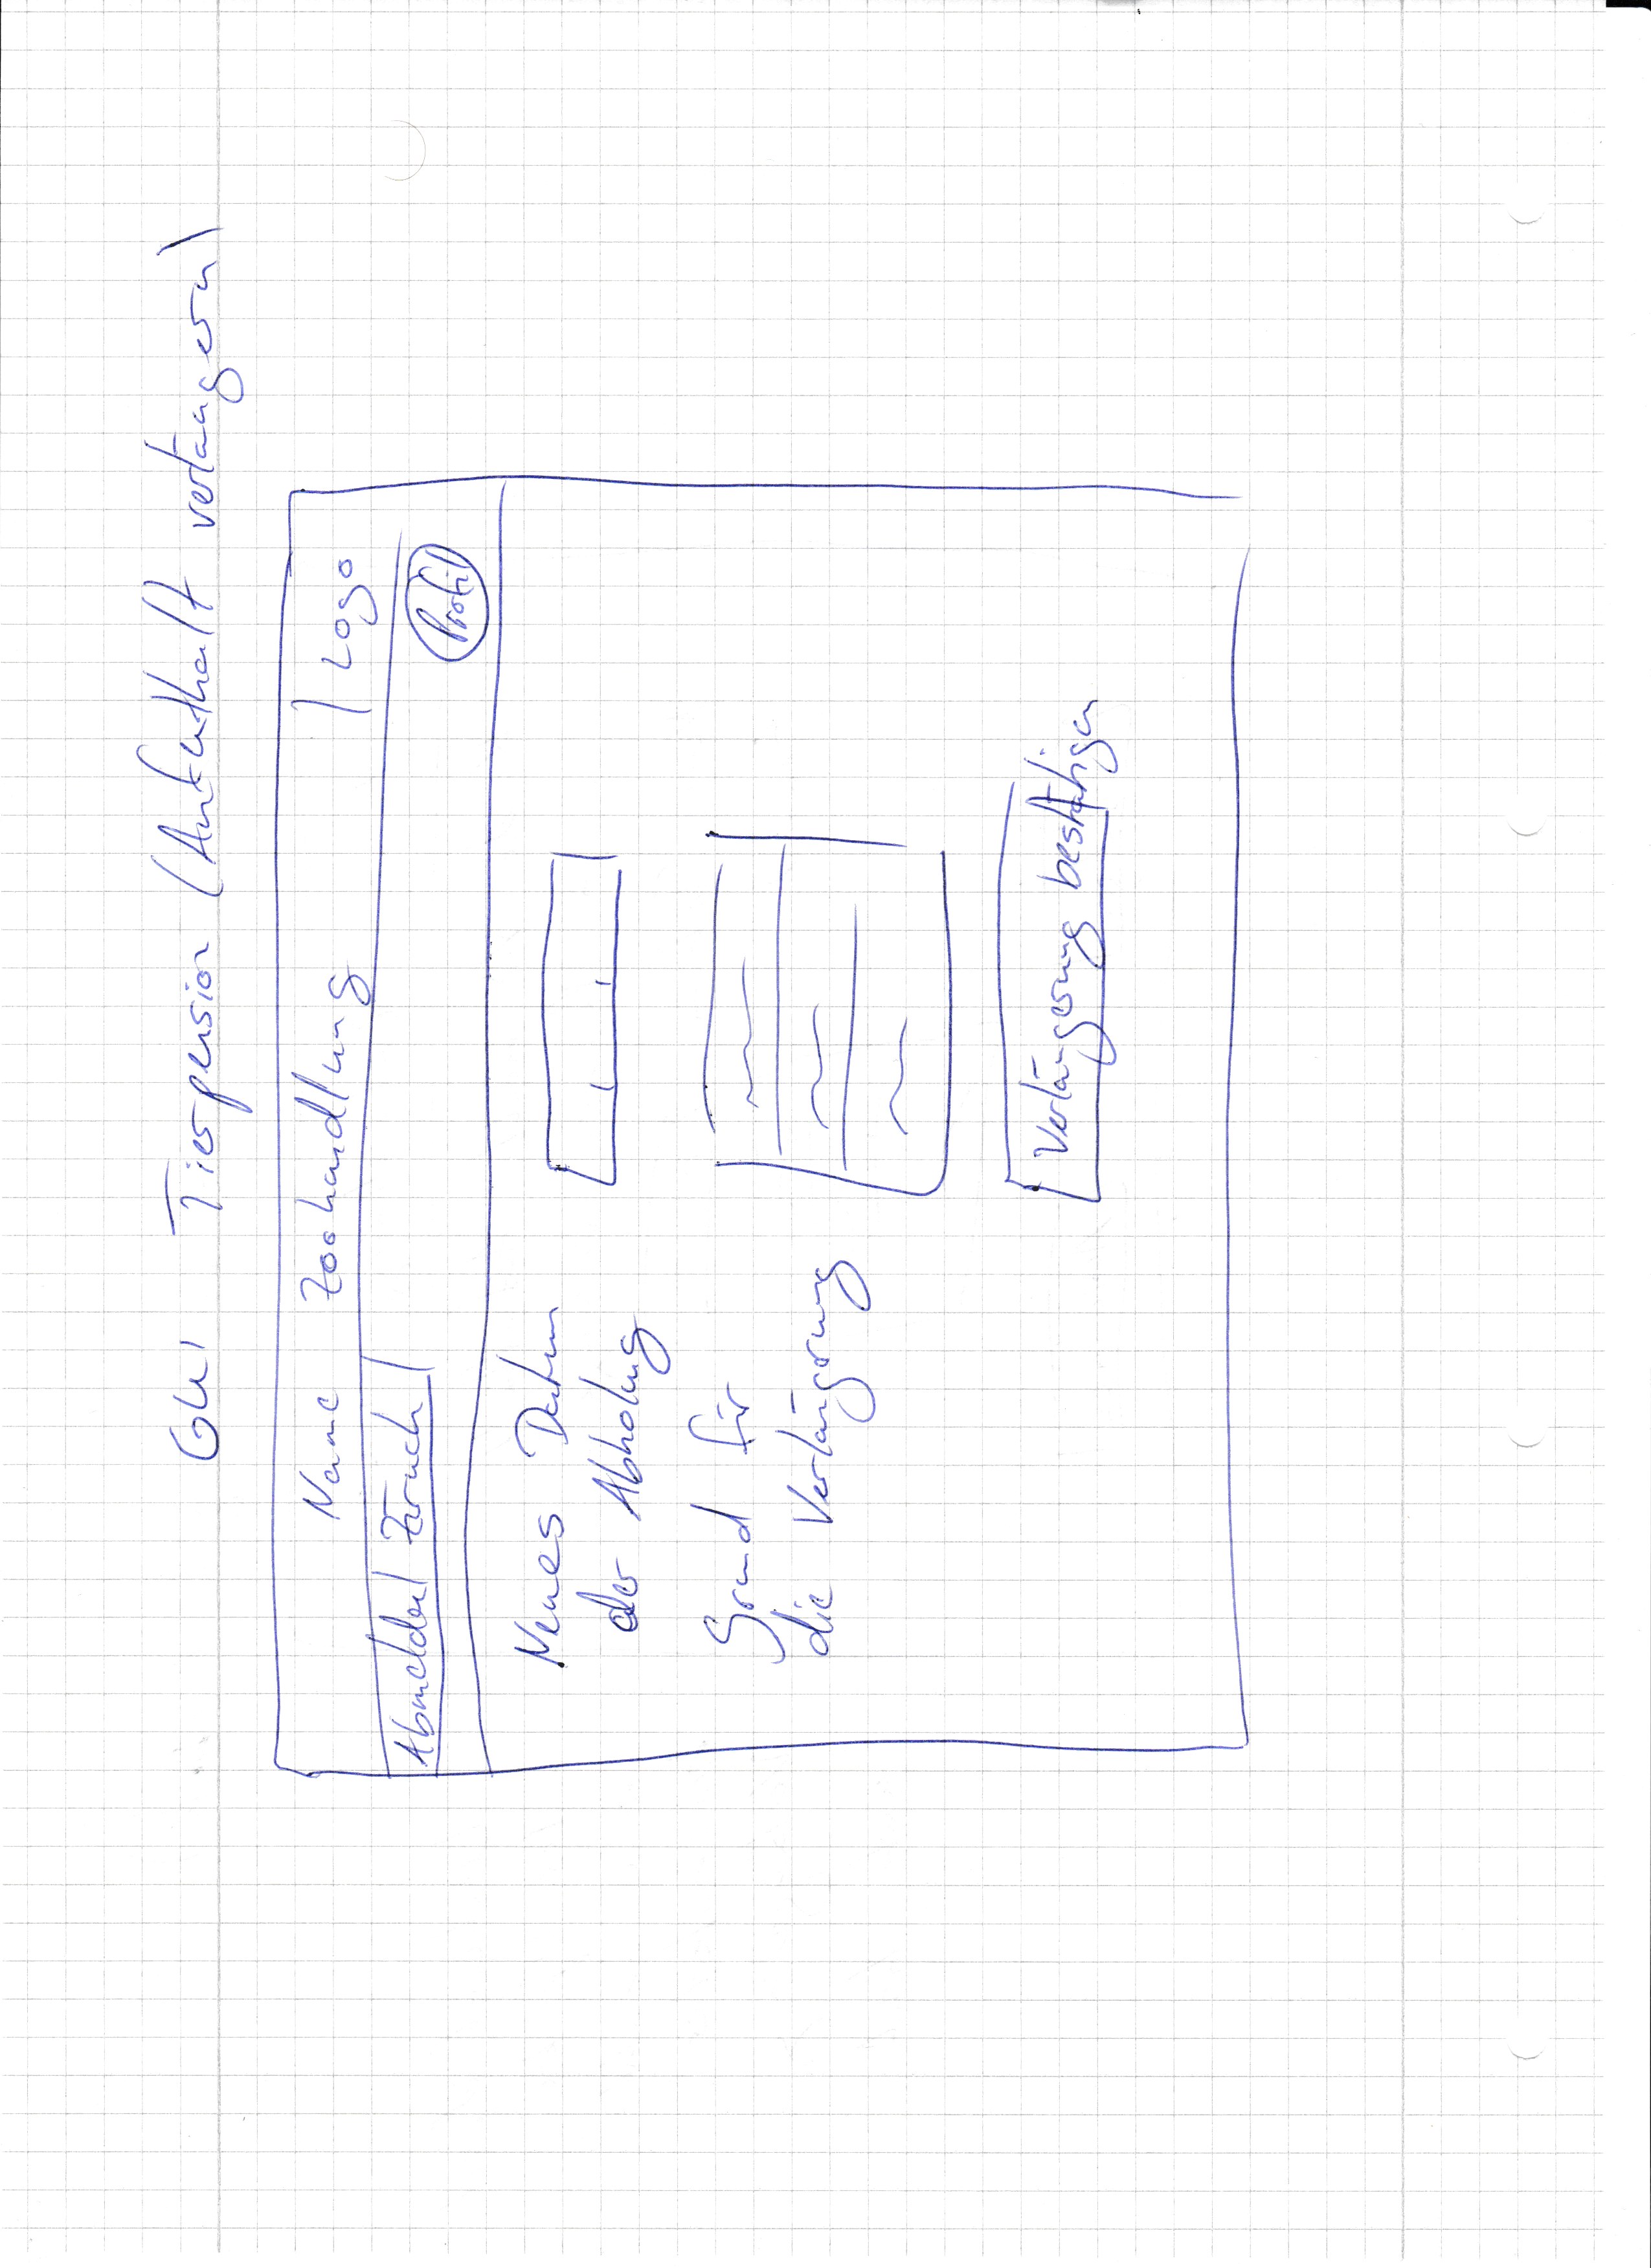 GUI Tierpension (Aufenthalt verlängern)
Name Zoohandlung | Logo
Abmelden Zurück Profil
Neues Datum
der Abholung
Grund für
die Verlängerung
Verlängerung bestätigen